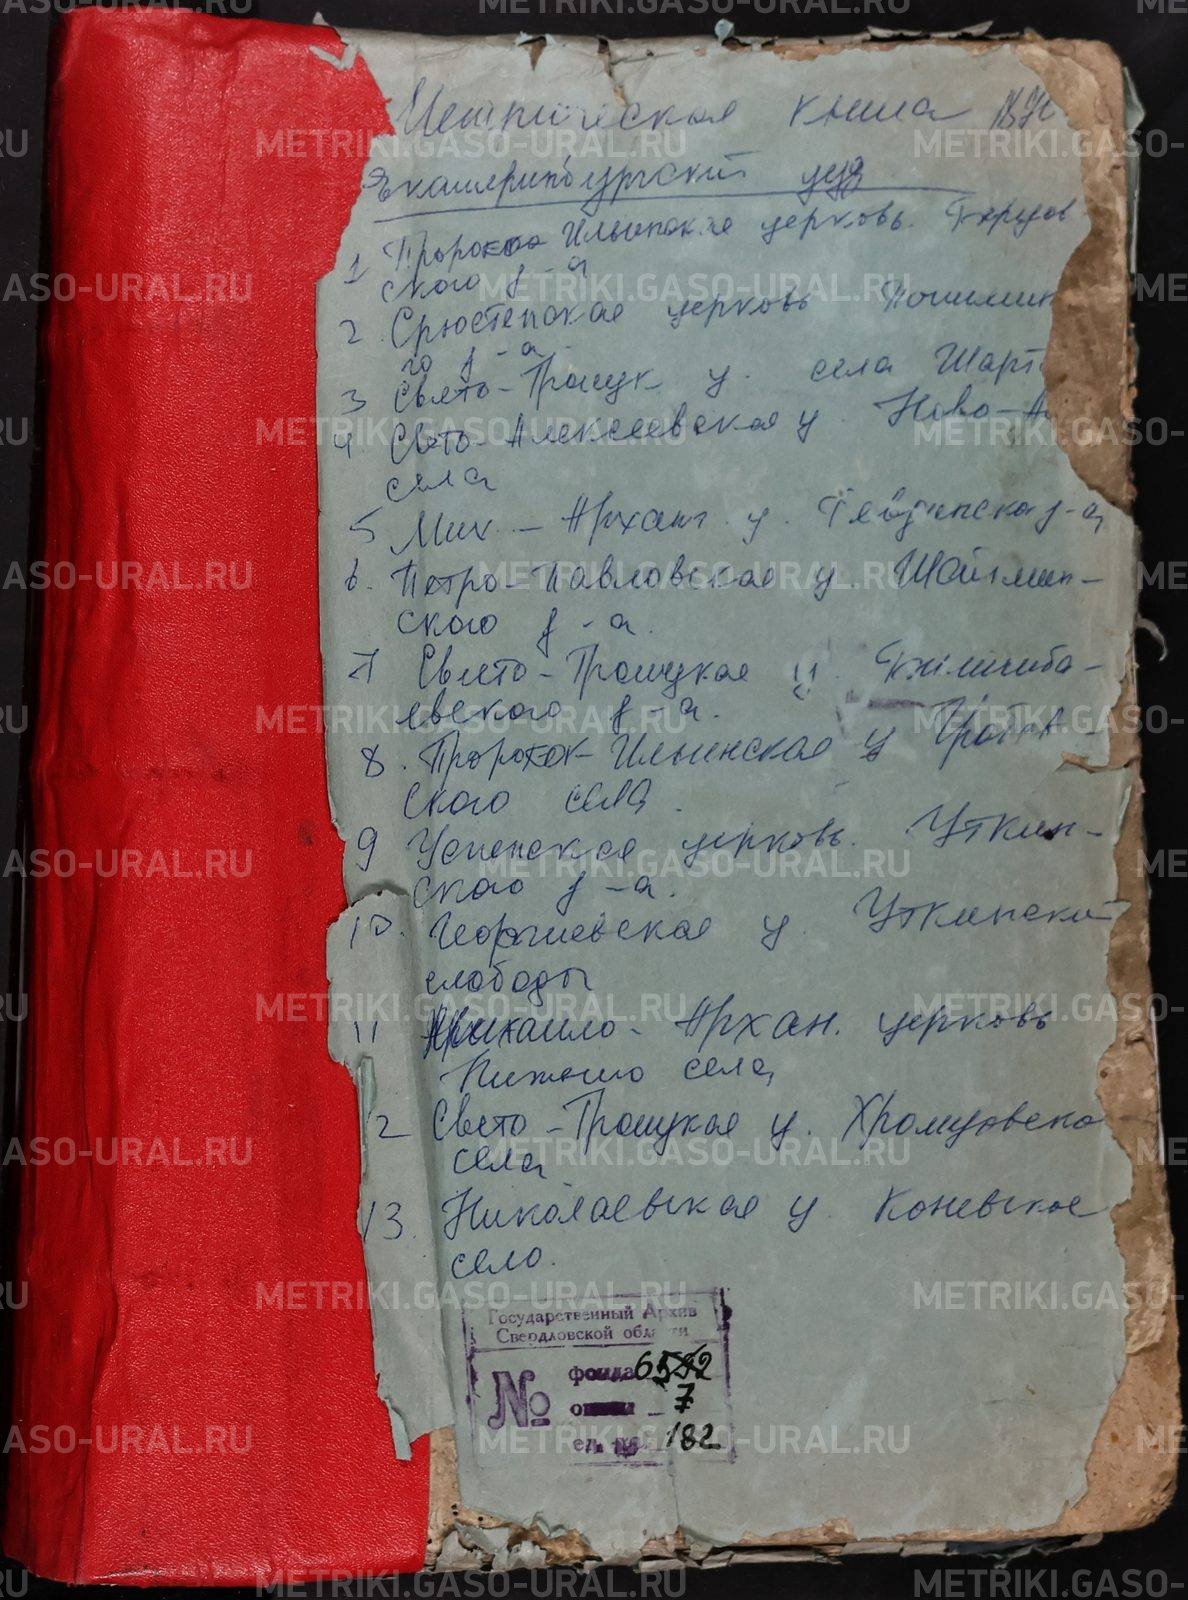 Метрическая книга
Екатеринбургский уезд
1 Пророко Ильинская церковь.
ского з-а
2. Сретенская церковь
го з-а
3 Свято-Троицк ц. села Шарт
4. Свято-Алексеевская ц. Ново-А
села
5 Мих - Арханг ц. з-а
6. Петро-Павловская ц Шайтан-
ского з-а.
7 Свято-Троицкая ц.
евского з-а.
8. Пророко-Ильинская ц
ского села.
9 Успенская церковь. Уткин-
ского з-а.
10. Георгиевская ц. Уткинской
слободы
11 Михаило-Архан. церковь
Нижнего села
12 Свято-Троицкая ц. Хромцовско
села
13. Николаевская ц. Коневское
село.
Государственный Архив
Свердловской области
№
фонда 6592
описи 7
ед. хр. 182
METRIKI.GASO-URAL.RU